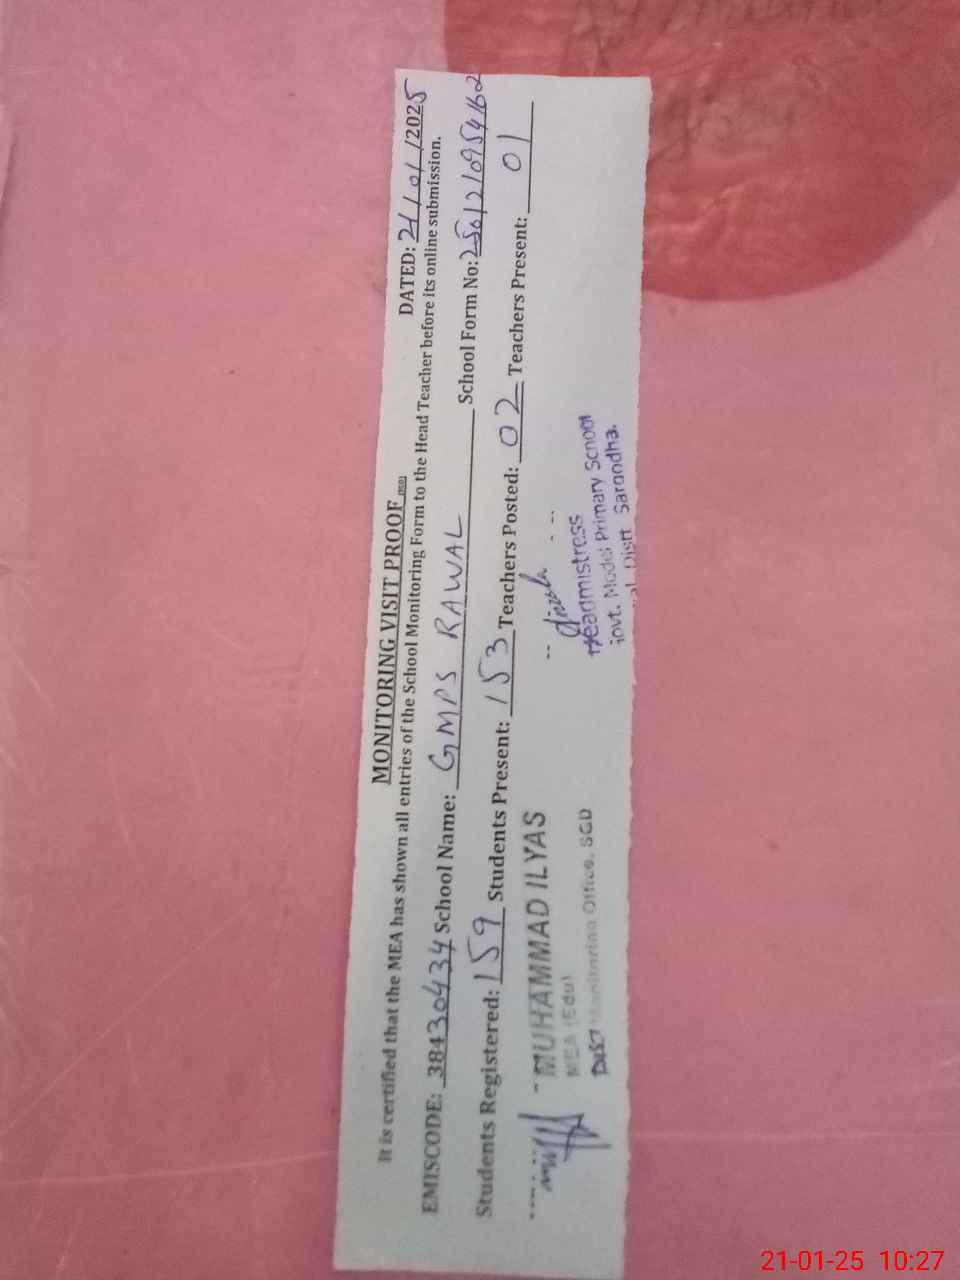 MONITORING VISIT PROOF
DATED: 21/01/2025
It is certified that the MEA has shown all entries of the School Monitoring Form to the Head Teacher before its online submission.
EMISCODE: 38430434 School Name: GMPS RAWAL School Form No:
Students Registered: 159 Students Present: 153 Teachers Posted: 02 Teachers Present: 01
MUHAMMAD ILYAS
MEA (Edu)
Monitoring Office, SGD
Headmistress
Govt. Model Primary School
Distt Sargodha.
21-01-25 10:27